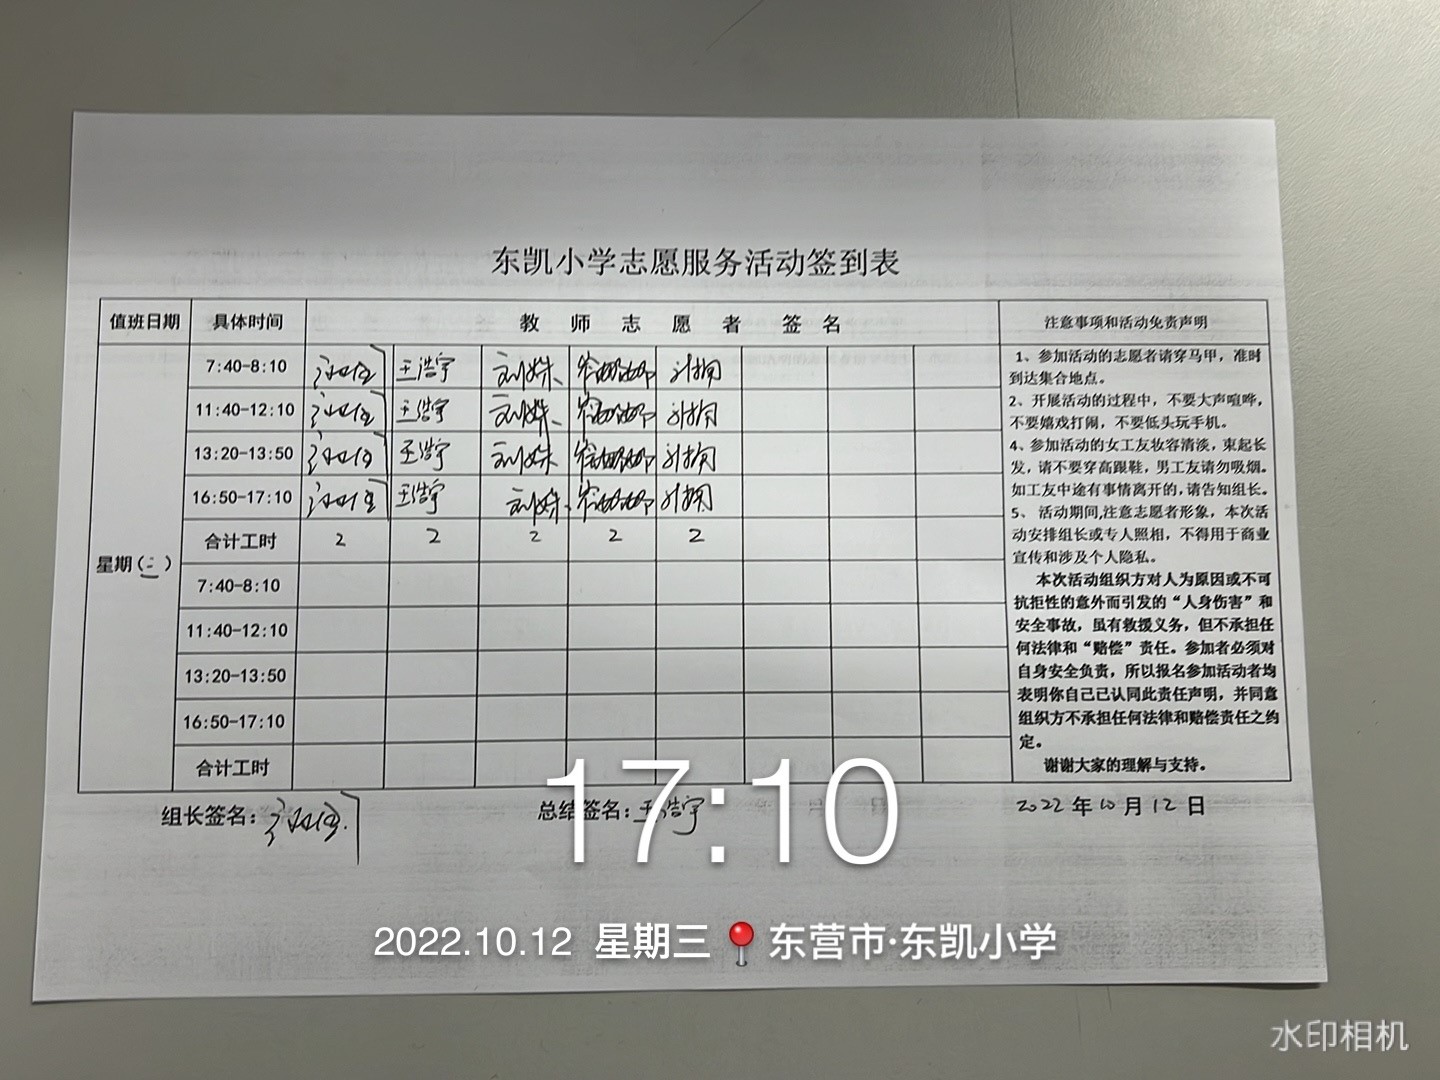 东凯小学志愿服务活动签到表
值班日期 具体时间 教 师 志 愿 者 签 名 注意事项和活动免责声明
7:40-8:10 王浩宇 刘姝
11:40-12:10 王浩宇 刘姝
13:20-13:50 王浩宇 刘姝
16:50-17:10 王浩宇 刘姝
合计工时 2 2 2 2 2
星期(三)
7:40-8:10
11:40-12:10
13:20-13:50
16:50-17:10
合计工时
1、参加活动的志愿者请穿马甲，准时
到达集合地点。
2、开展活动的过程中，不要大声喧哗，
不要嬉戏打闹，不要低头玩手机。
4、参加活动的女工友妆容清淡，束起长
发，请不要穿高跟鞋，男工友请勿吸烟。
如工友中途有事情离开的,请告知组长。
5、活动期间,注意志愿者形象，本次活
动安排组长或专人照相，不得用于商业
宣传和涉及个人隐私。
本次活动组织方对人为原因或不可
抗拒性的意外而引发的“人身伤害”和
安全事故，虽有救援义务，但不承担任
何法律和“赔偿”责任。参加者必须对
自身安全负责，所以报名参加活动者均
表明你自己已认同此责任声明，并同意
组织方不承担任何法律和赔偿责任之约
定。
谢谢大家的理解与支持。
组长签名: 总结签名:王浩宇 2022年10月12日
17:10
2022.10.12 星期三 东营市·东凯小学
水印相机